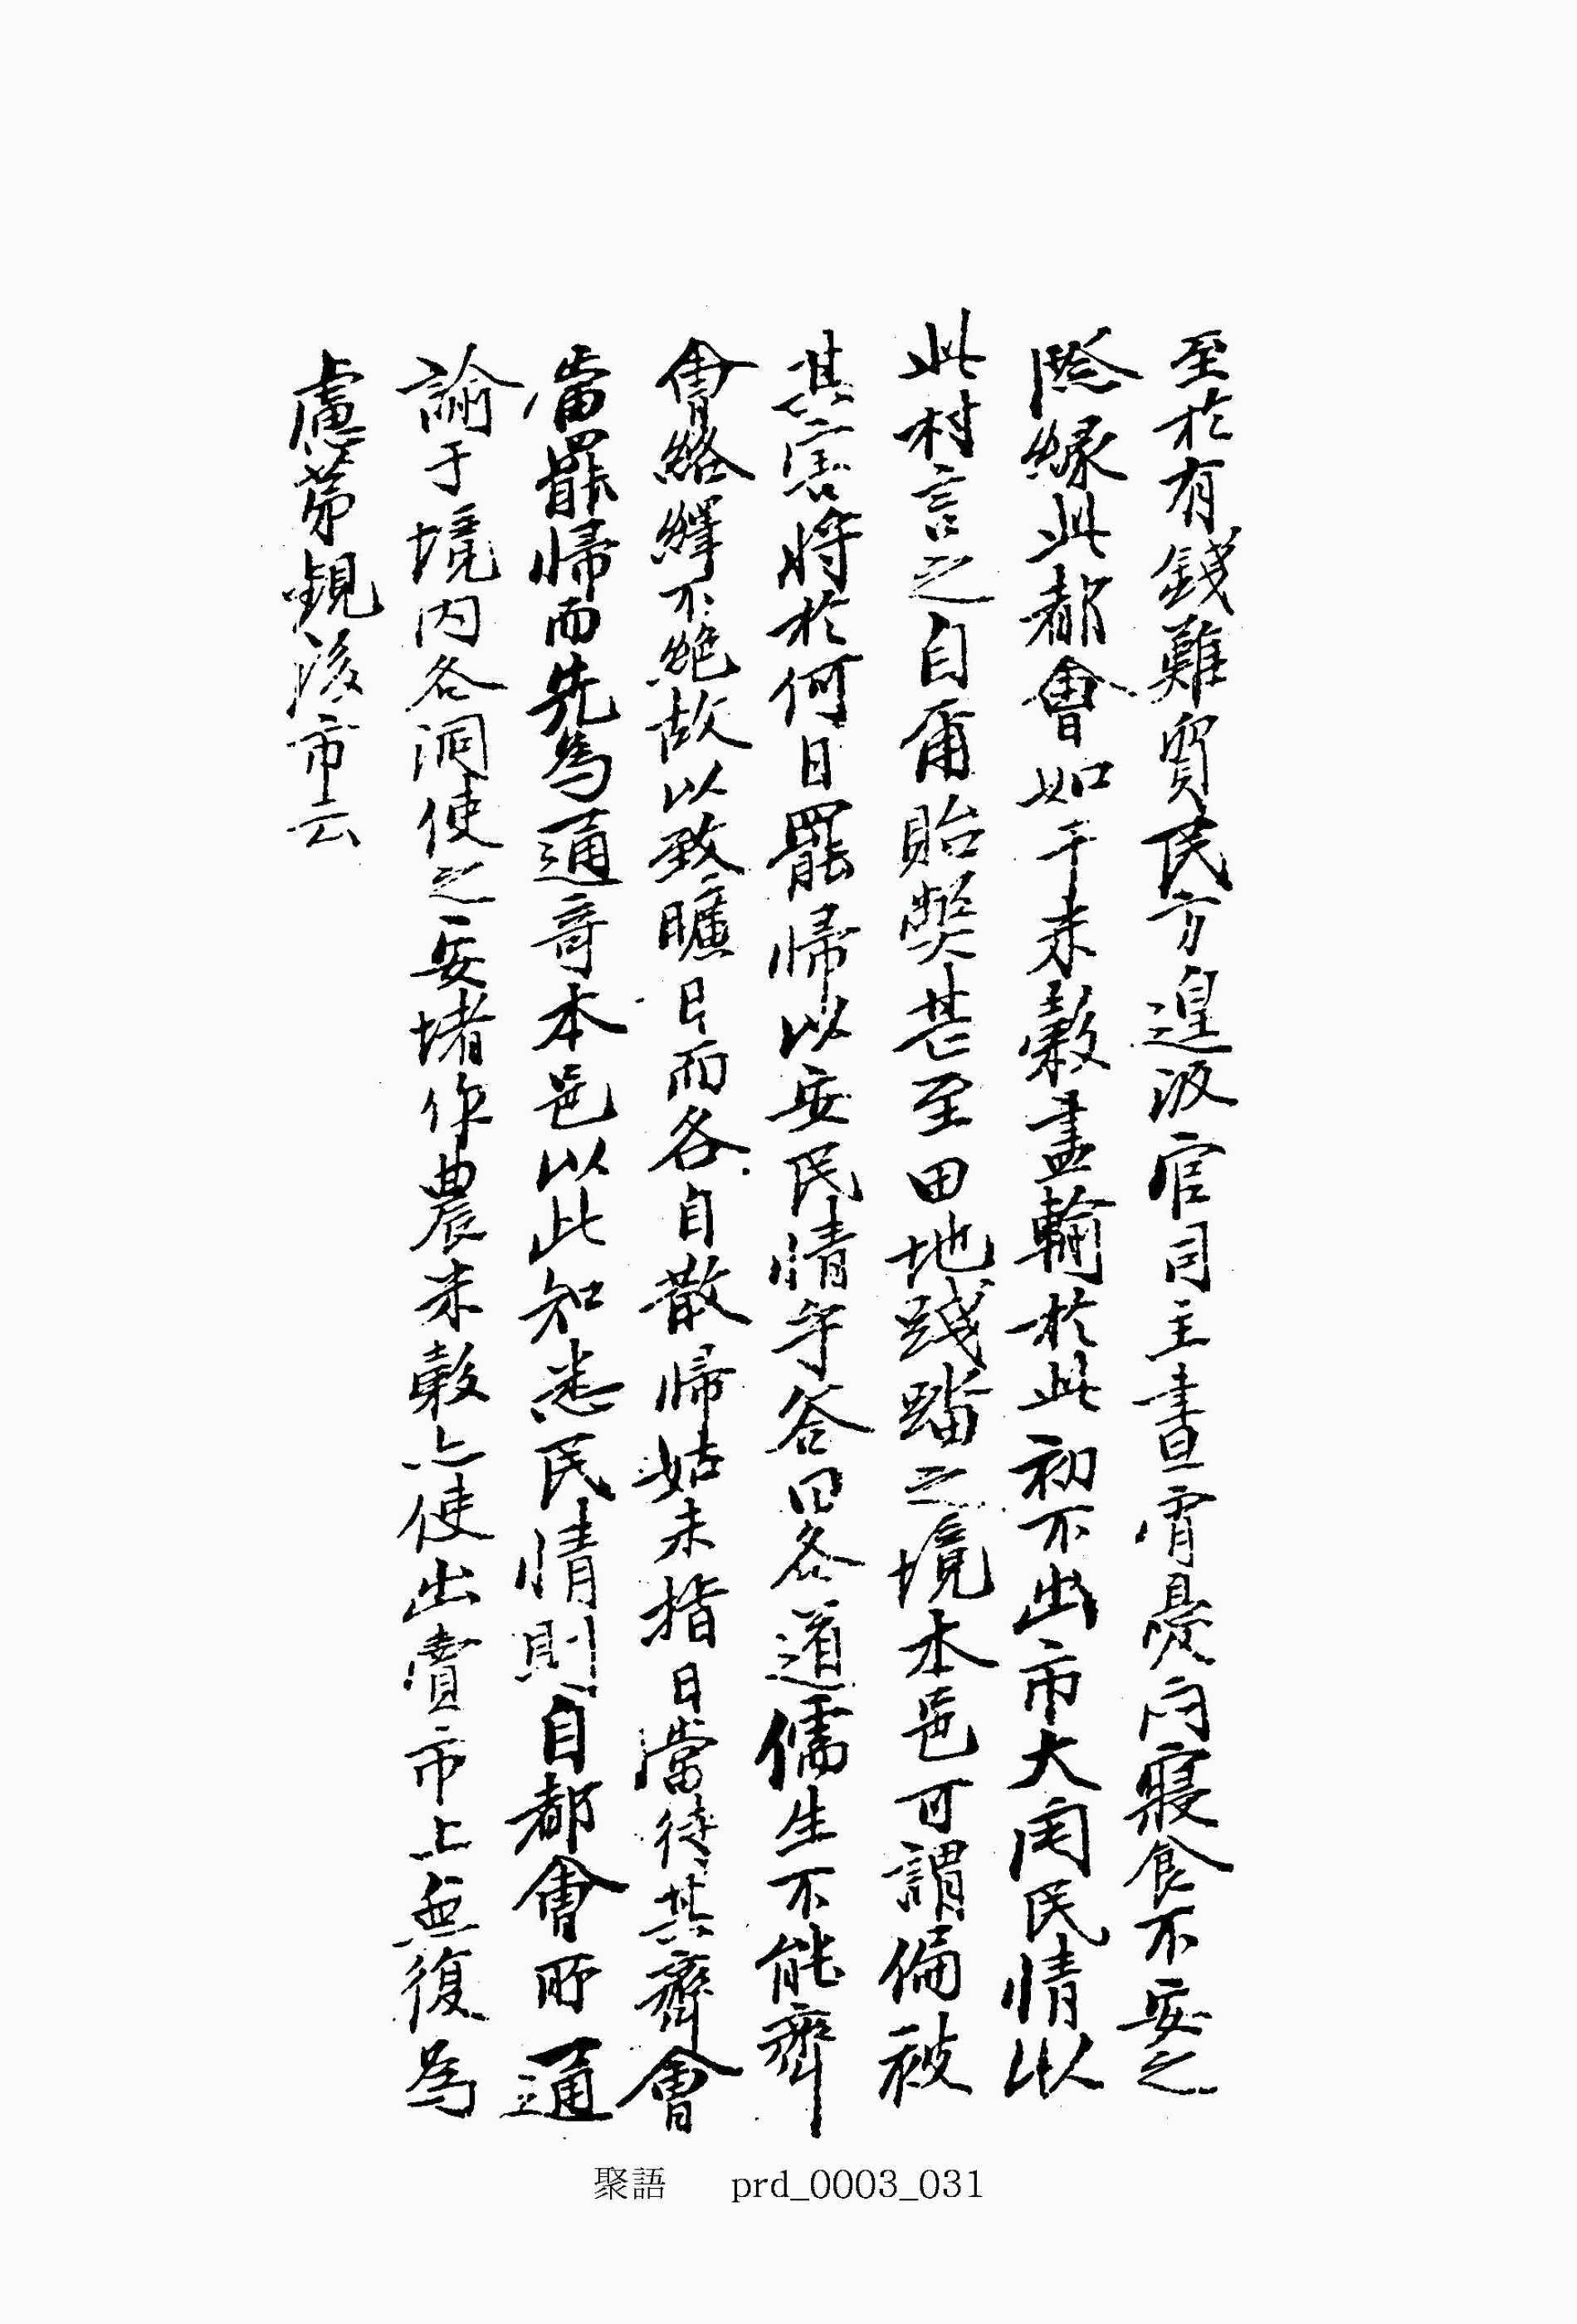 至於有錢難貿民方遑汲官司主晝宵憂悶寢食不安之
際緣此都會如干米穀盡輸於此初不出市大関民情以
此村言之自爾貽弊甚至田地踐踏之境本邑可謂偏被
其害將於何日罷歸以安民情乎答曰各道儒生不能齊
會絡繹不絶故以致曠日而各自散歸姑未指日當待其齊會
當罷歸而先爲通奇本邑以此知悉民情則自都會所通
諭于境內各洞使之安堵作農米穀亦使出賣市上無復爲
慮第觀後市云
聚語 prd_0003_031